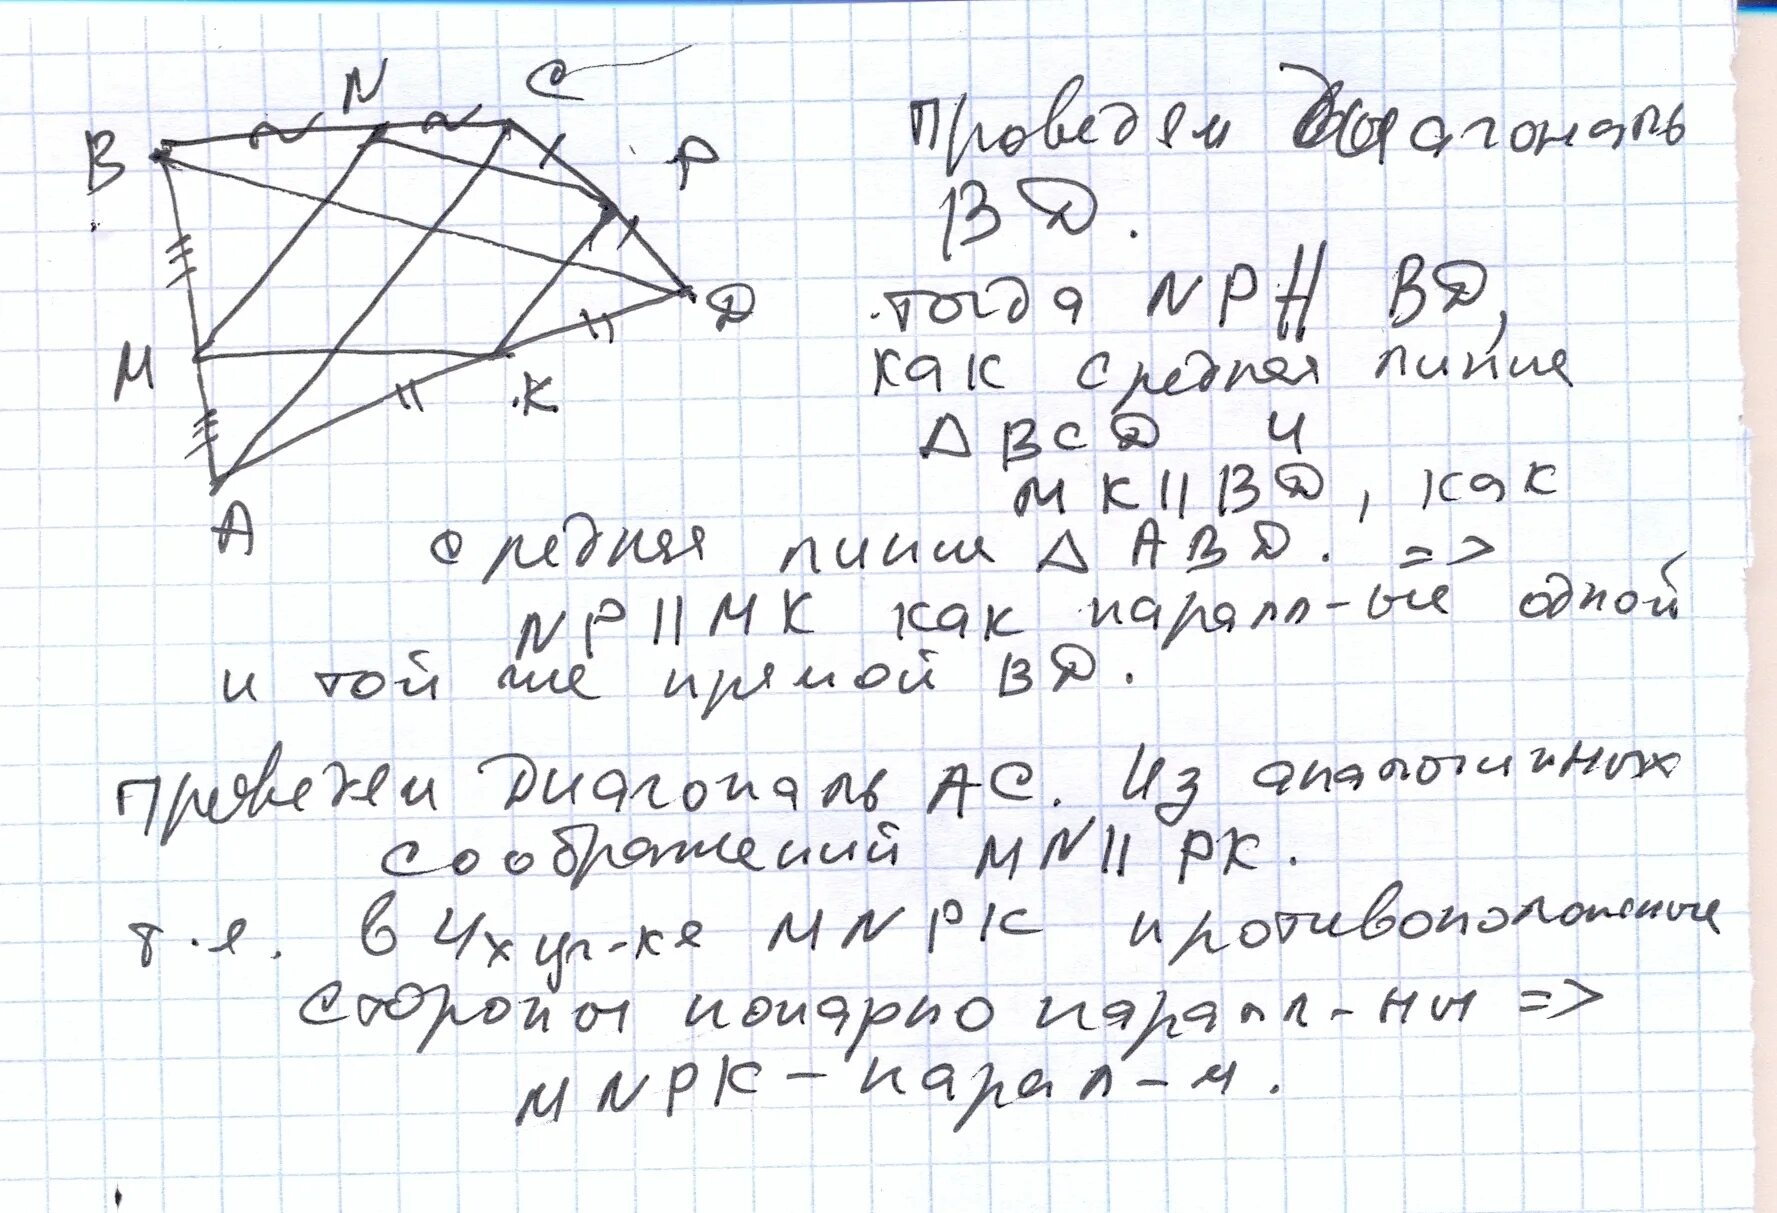 N C
B P
D
M K
A
Проведем диагональ
BD.
тогда NP || BD,
как средняя линия
Δ BCD и
MK || BD, как
средняя линия Δ ABD. =>
NP || MK как паралл-ые одной
и той же прямой BD.
Проведем диагональ AC. Из аналогичных
соображений MN || PK.
т.е. в 4х уг-ке MNPK противоположные
стороны попарно паралл-ны =>
MNPK - парал-м.